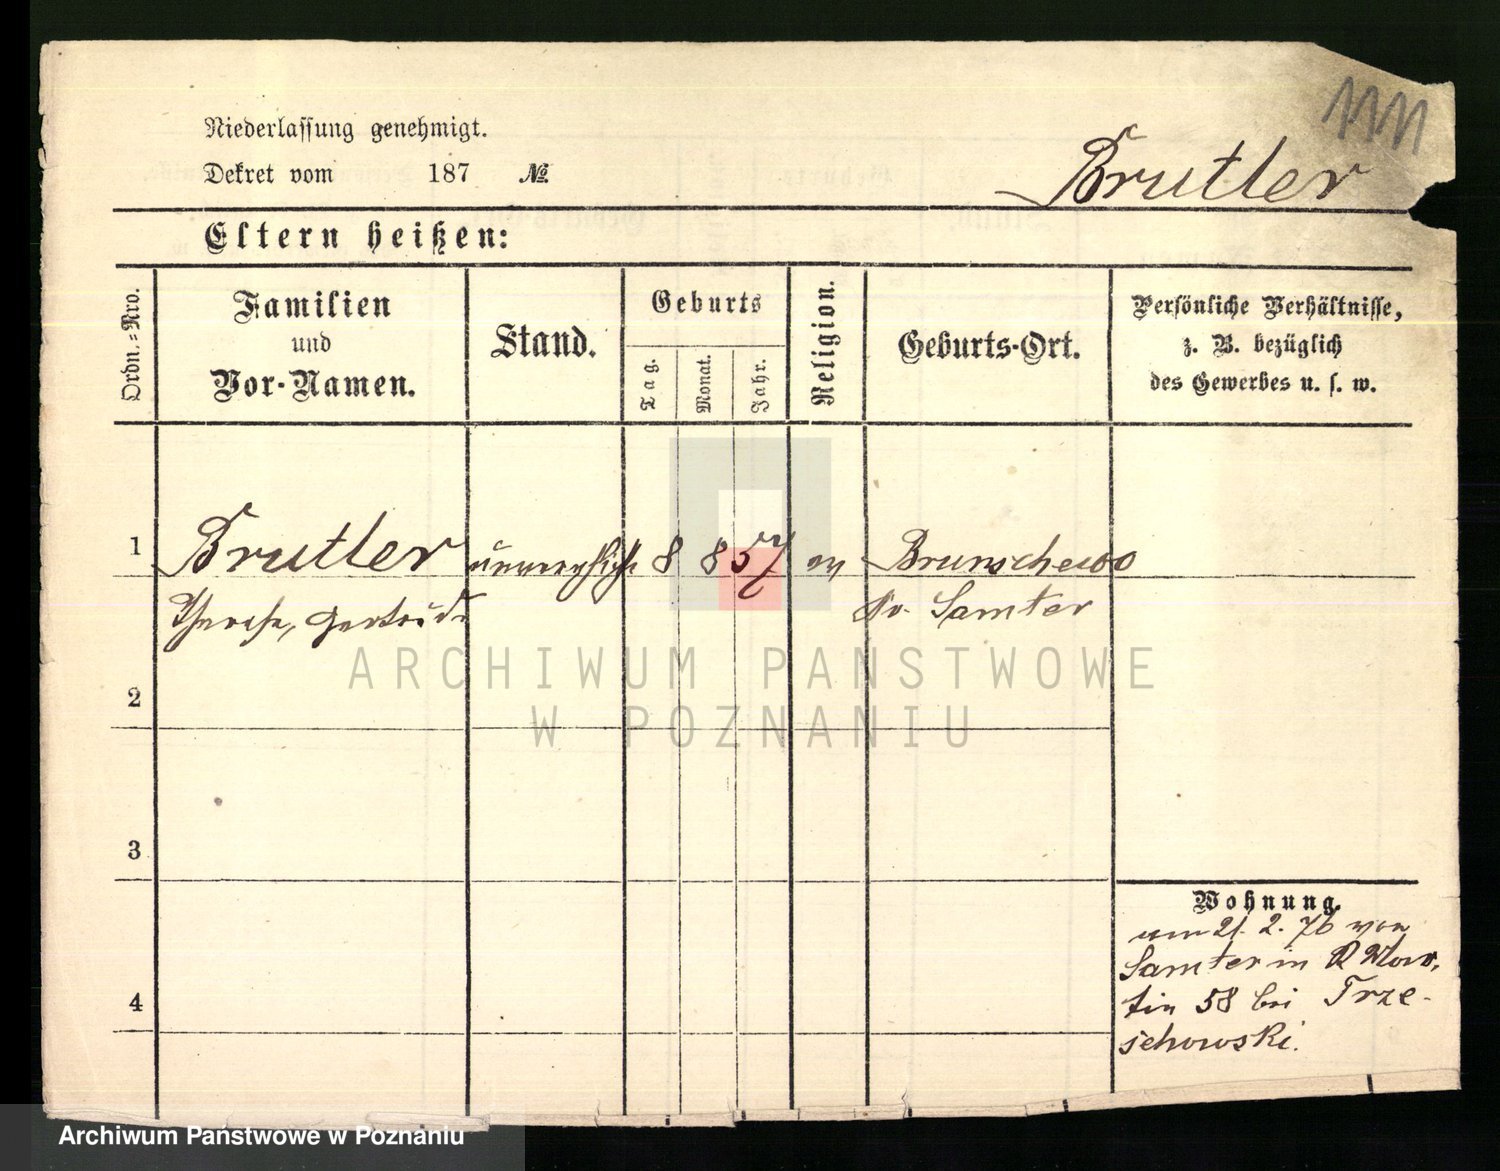 Niederlassung genehmigt.
Dekret vom 187 №
Brutler
Eltern heißen:
Ordn.=Nro.
Familien
und
Vor-Namen.
Stand.
Geburts
Tag.
Monat.
Jahr.
Religion.
Geburts-Ort.
Persönliche Verhältnisse,
z. B. bezüglich
des Gewerbes u. s. w.
1 Brutler unverehlicht 8 8 57 ev Brunschewo
Therese, Gertrude Kr. Samter
2
3
4
Wohnung.
21. 2. 76 von
Samter in
58 bei Trze-
schowski.
ARCHIWUM PAŃSTWOWE
W POZNANIU
Archiwum Państwowe w Poznaniu